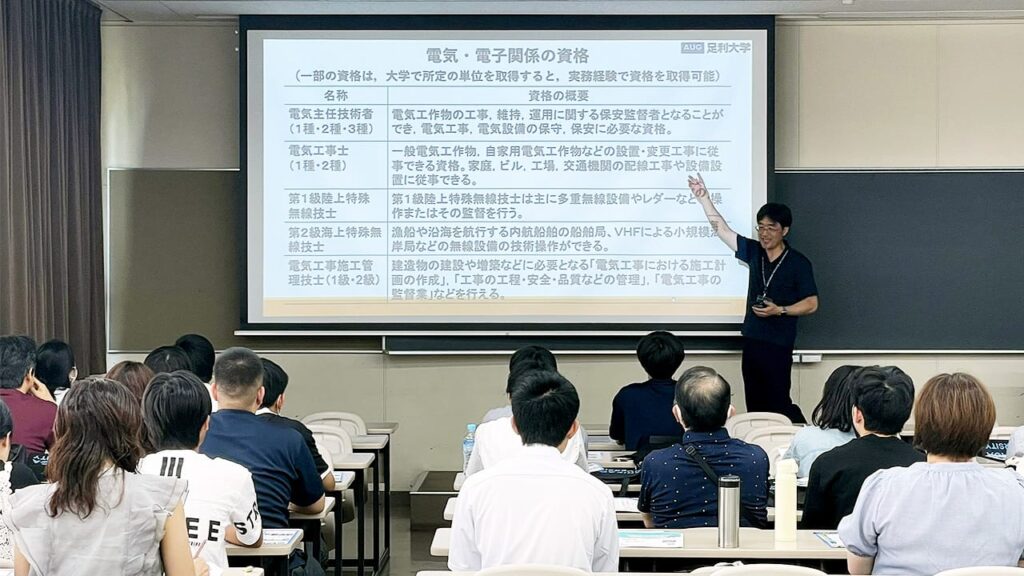 電気・電子関係の資格
AUG 足利大学
(一部の資格は，大学で所定の単位を取得すると，実務経験で資格を取得可能)
名称 資格の概要
電気主任技術者
(1種・2種・3種)
電気工作物の工事，維持，運用に関する保安監督者となることが
でき，電気工事，電気設備の保守，保安に必要な資格。
電気工事士
(1種・2種)
一般電気工作物，自家用電気工作物などの設置・変更工事に従
事できる資格。家庭，ビル，工場，交通機関の配線工事や設備設
置に従事できる。
第1級陸上特殊
無線技士
第1級陸上特殊無線技士は主に多重無線設備やレダーなど
操
作またはその監督を行う。
第2級海上特殊無
線技士
漁船や沿海を航行する内航船舶の船舶局、VHFによる小規模
岸局などの無線設備の技術操作ができる。
電気工事施工管
理技士(1級・2級)
建造物の建設や増築などに必要となる「電気工事における施工計
画の作成」，「工事の工程・安全・品質などの管理」，「電気工事の
監督業」などを行える。